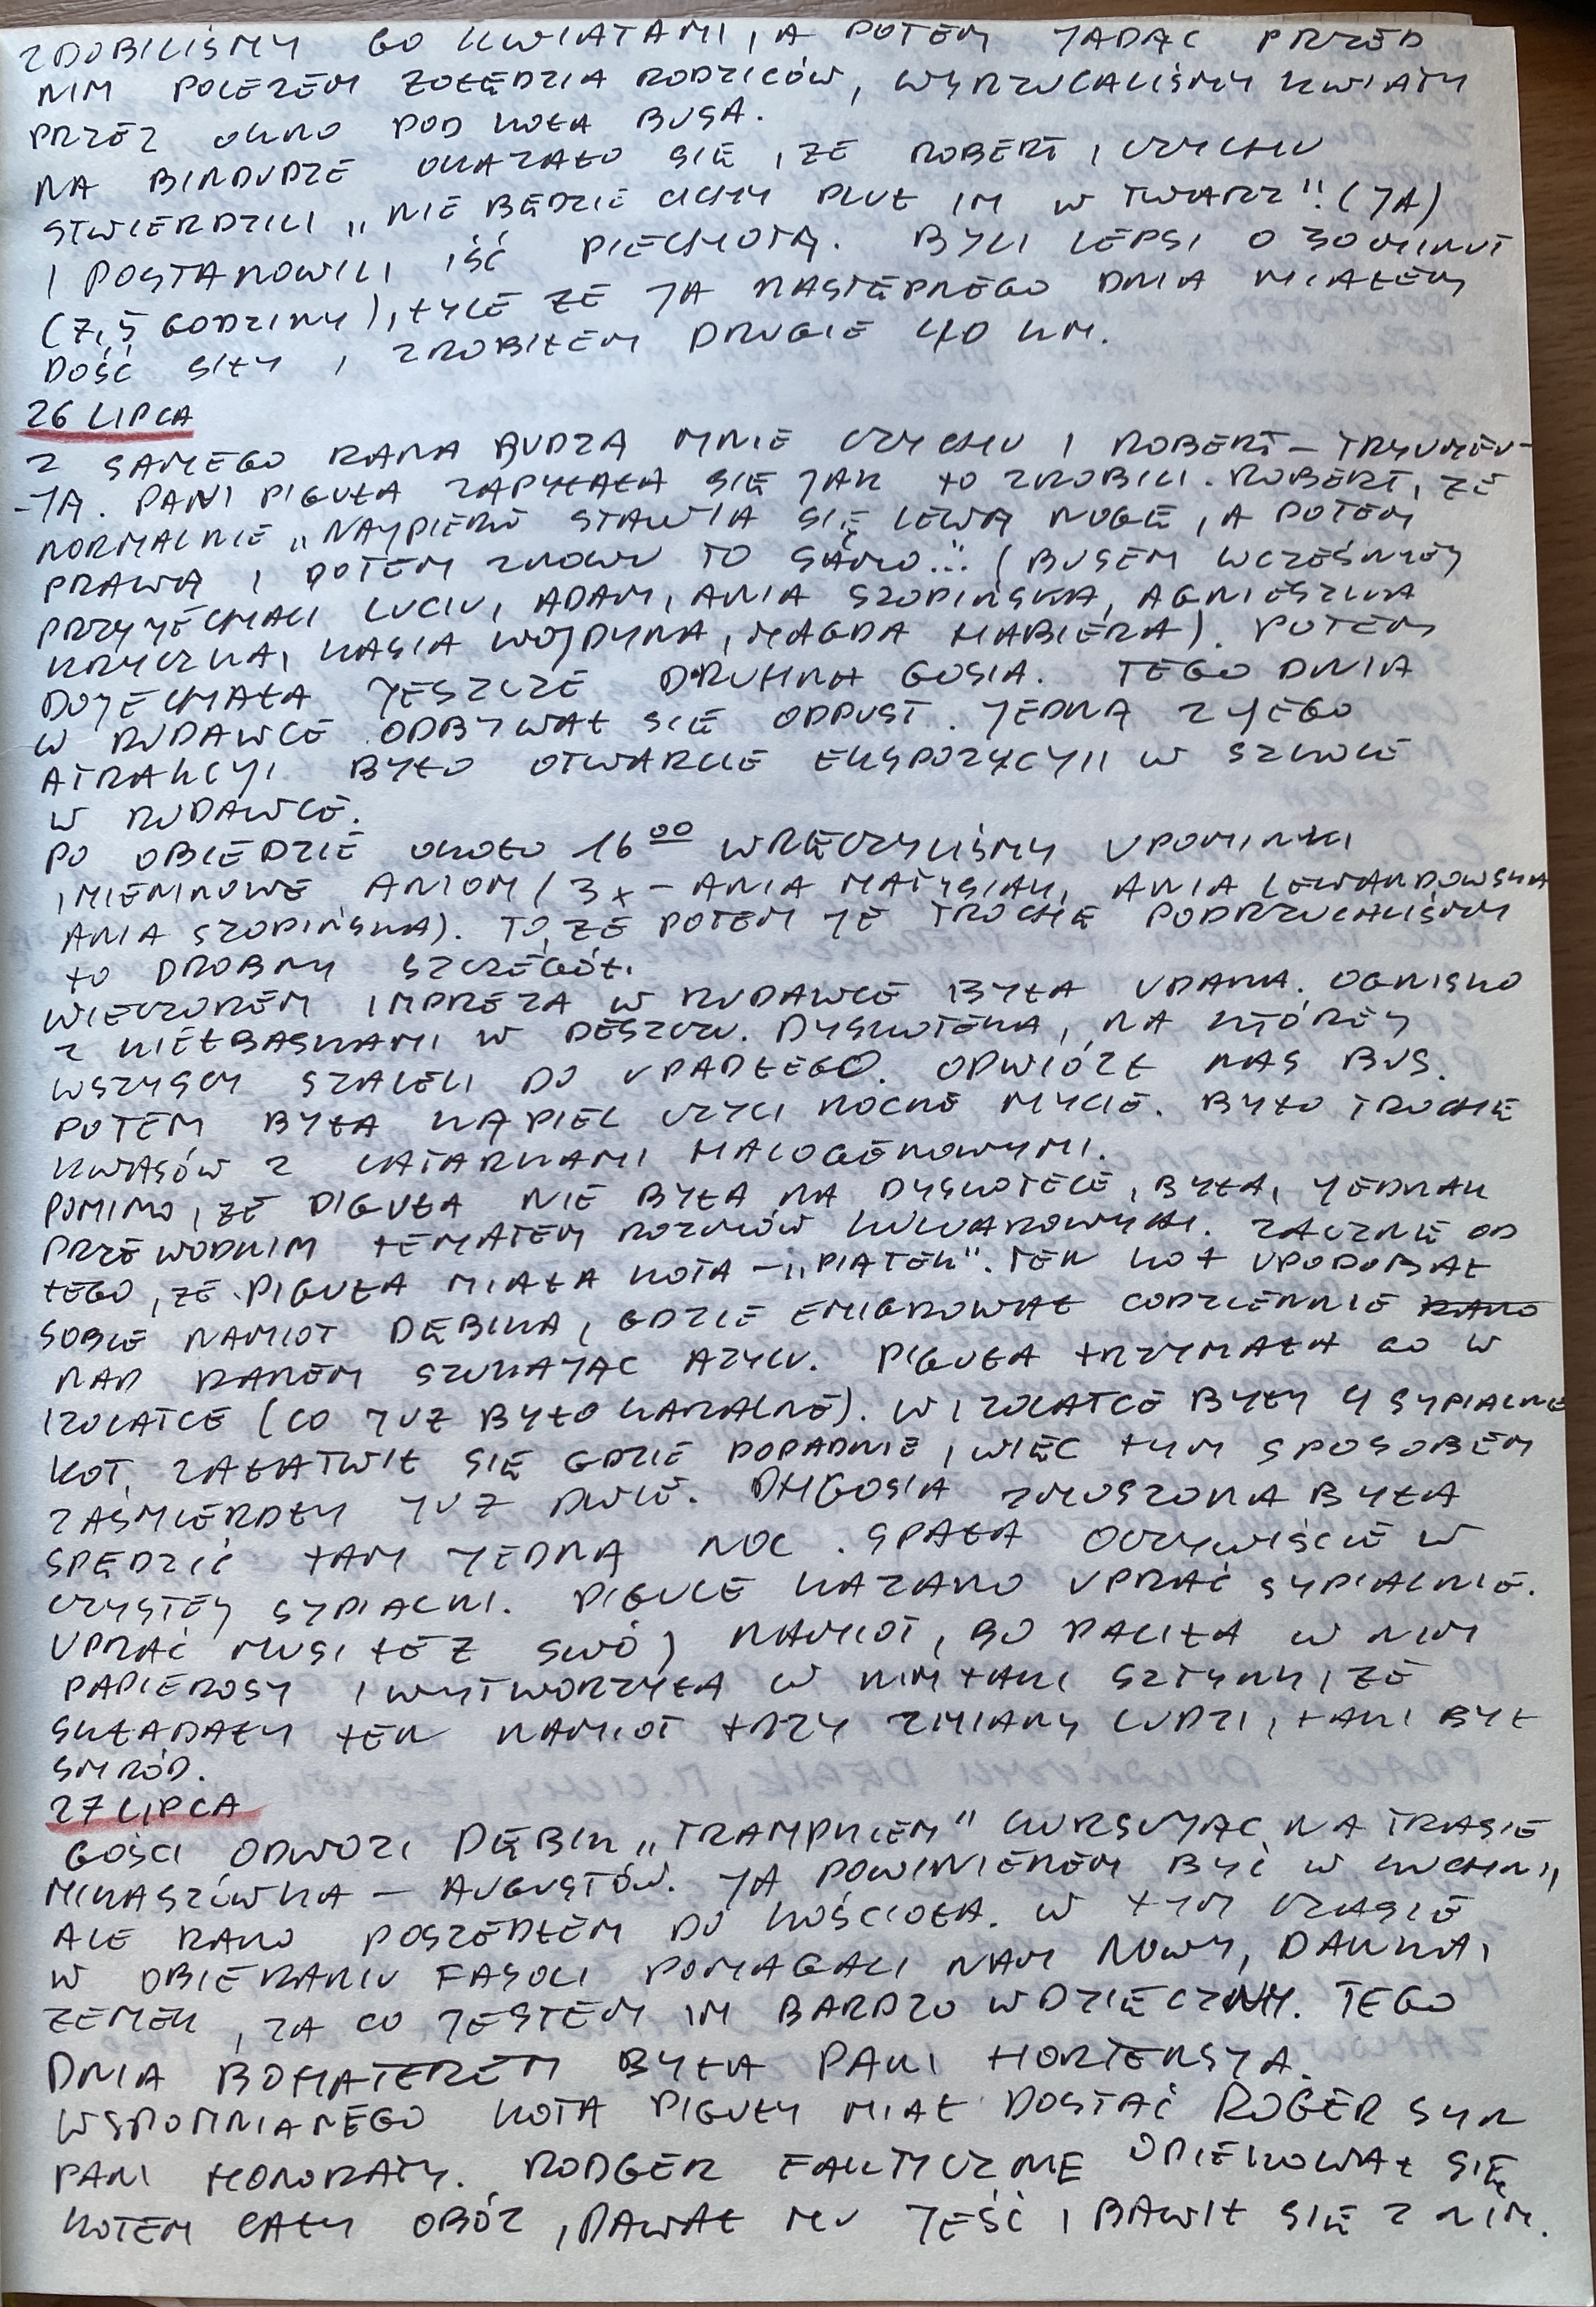 ZDOBILIŚMY GO KWIATAMI, A POTEM JADĄC PRZED
NIM POLEZEM ZOŁĘDZIA RODZICÓW, WYRZUCALIŚMY KWIATY
PRZEZ OKNO POD KOŁA BUSA.
NA BINDUDZE OKAZAŁO SIĘ, ŻE ROBERT, CZYCHU
STWIERDZILI „NIE BĘDZIE CICHY PLUŁ IM W TWARZ"! (JA)
I POSTANOWILI IŚĆ PIECHOTĄ. BYLI LEPSI O 30 MINUT
(7,5 GODZINY), TYLE ŻE JA NASTĘPNEGO DNIA MIAŁEM
DOŚĆ SIŁY I ZROBIŁEM DRUGIE 40 KM.
26 LIPCA
Z SAMEGO RANA BUDZĄ MNIE CZYCHU I ROBERT – TRYUMFU-
-JĄ. PANI PIGUŁA ZAPYTAŁA SIĘ JAK TO ZROBILI. ROBERT, ŻE
NORMALNIE „NAJPIERW STAWIA SIĘ LEWĄ NOGĘ, A POTEM
PRAWĄ I POTEM ZNOWU TO SAMO..." (BUSEM WCZEŚNIEJ
PRZYJECHALI LUCIU, ADAM, ANIA SZOPIŃSKA, AGNIESZKA
KRYCZKA, KASIA WOJDYNA, MAGDA HABIERA). POTEM
DOJECHAŁA JESZCZE DRUHNA GOSIA. TEGO DNIA
W RUDAWCE ODBYWAŁ SIĘ ODPUST. JEDNĄ Z JEGO
ATRAKCYJ BYŁO OTWARCIE EKSPOZYCYJI W SZKOLE
W RUDAWCE.
PO OBIEDZIE OKOŁO 16⁰⁰ WRĘCZYLIŚMY UPOMINKI
IMIENINOWE ANIOM (3x – ANIA MATYSIAK, ANIA LEWANDOWSKA
ANIA SZOPIŃSKA). TO, ŻE POTEM JE TROCHĘ PODRZUCALIŚMY
TO DROBNY SZCZEGÓŁ.
WIECZOREM IMPREZA W RUDAWCE BYŁA UDANA. OGNISKO
Z KIEŁBASKAMI W DESZCZU. DYSKOTEKA, NA KTÓREJ
WSZYSCY SZALELI DO UPADŁEGO. ODWIÓZŁ NAS BUS.
POTEM BYŁA KĄPIEL CZYLI NOCNE MYCIE. BYŁO TROCHĘ
KWASÓW Z LATARKAMI HALOGENOWYMI.
POMIMO, ŻE PIGUŁA NIE BYŁA NA DYSKOTECE, BYŁA, JEDNAK
PRZEWODNIM TEMATEM ROZMÓW KULUAROWYCH. ZACZNĘ OD
TEGO, ŻE PIGUŁA MIAŁA KOTA – „PIĄTEK". TEN KOT UPODOBAŁ
SOBIE NAMIOT DĘBIKA, GDZIE EMIGROWAŁ CODZIENNIE RANO
NAD RANEM SZUKAJĄC AZYLU. PIGUŁA TRZYMAŁA GO W
IZOLATCE (CO JUŻ BYŁO KARALNE). W IZOLATCE BYŁY 4 SYPIALNIE
KOT, ZAŁATWIŁ SIĘ GDZIE POPADNIE, WIĘC TYM SPOSOBEM
ZAŚMIERDŁY JUŻ DWIE. DH GOSIA ZMUSZONA BYŁA
SPĘDZIĆ TAM JEDNĄ NOC. SPAŁA OCZYWIŚCIE W
CZYSTEJ SYPIALNI. PIGULE KAZANO UPRAĆ SYPIALNIE.
UPRAĆ MUSI TEŻ SWÓJ NAMIOT, BO PALIŁA W NIM
PAPIEROSY I WYTWORZYŁA W NIM TAKI SZTYNK, ŻE
SKŁADAŁY TEN NAMIOT TRZY ZMIANY LUDZI, TAKI BYŁ
SMRÓD.
27 LIPCA
GOŚCI ODWOZI DĘBIK „TRAMPKIEM" KURSUJĄC NA TRASIE
MIKASZÓWKA – AUGUSTÓW. JA POWINIENEM BYĆ W KUCHNI,
ALE RANO POSZEDŁEM DO KOŚCIOŁA. W TYM CZASIE
W OBIERANIU FASOLI POMAGALI NAM NOWY, DANKA,
ZEMEK, ZA CO JESTEM IM BARDZO WDZIĘCZNY. TEGO
DNIA BOHATEREM BYŁA PANI HORTENSYA.
WSPOMNIANEGO KOTA PIGUŁY MIAŁ DOSTAĆ ROGER SYN
PANI HONORATY. RODGER FAKTYCZNIE OPIEKOWAŁ SIĘ
KOTEM CAŁY OBÓZ, DAWAŁ MU JEŚĆ I BAWIŁ SIĘ Z NIM.